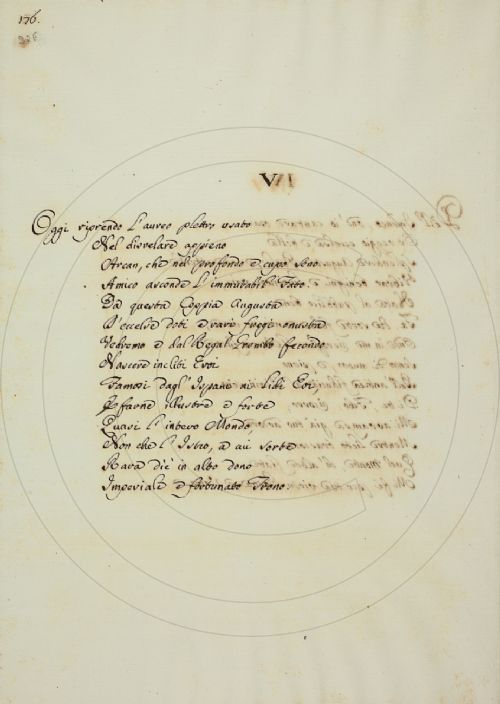 176.
VI
Oggi riprendo l'aureo plettro usato
Nel disvelare appieno
Arcan, che nel profondo e cupo seno
Amico asconde l'immutabil Fato.
Da questa Coppia Augusta
D'eccelse doti e varj fregi onusta
Vedremo e dal Regal Grembo fecondo
Nascere incliti Eroi
Famosi dagl'Ispani ai Libi Eoi,
E farne illustre e forte
Quasi l'intero Mondo,
Non che l'Istro, a cui sorte
Rara diè in alto dono
Imperiale e fortunato Trono.